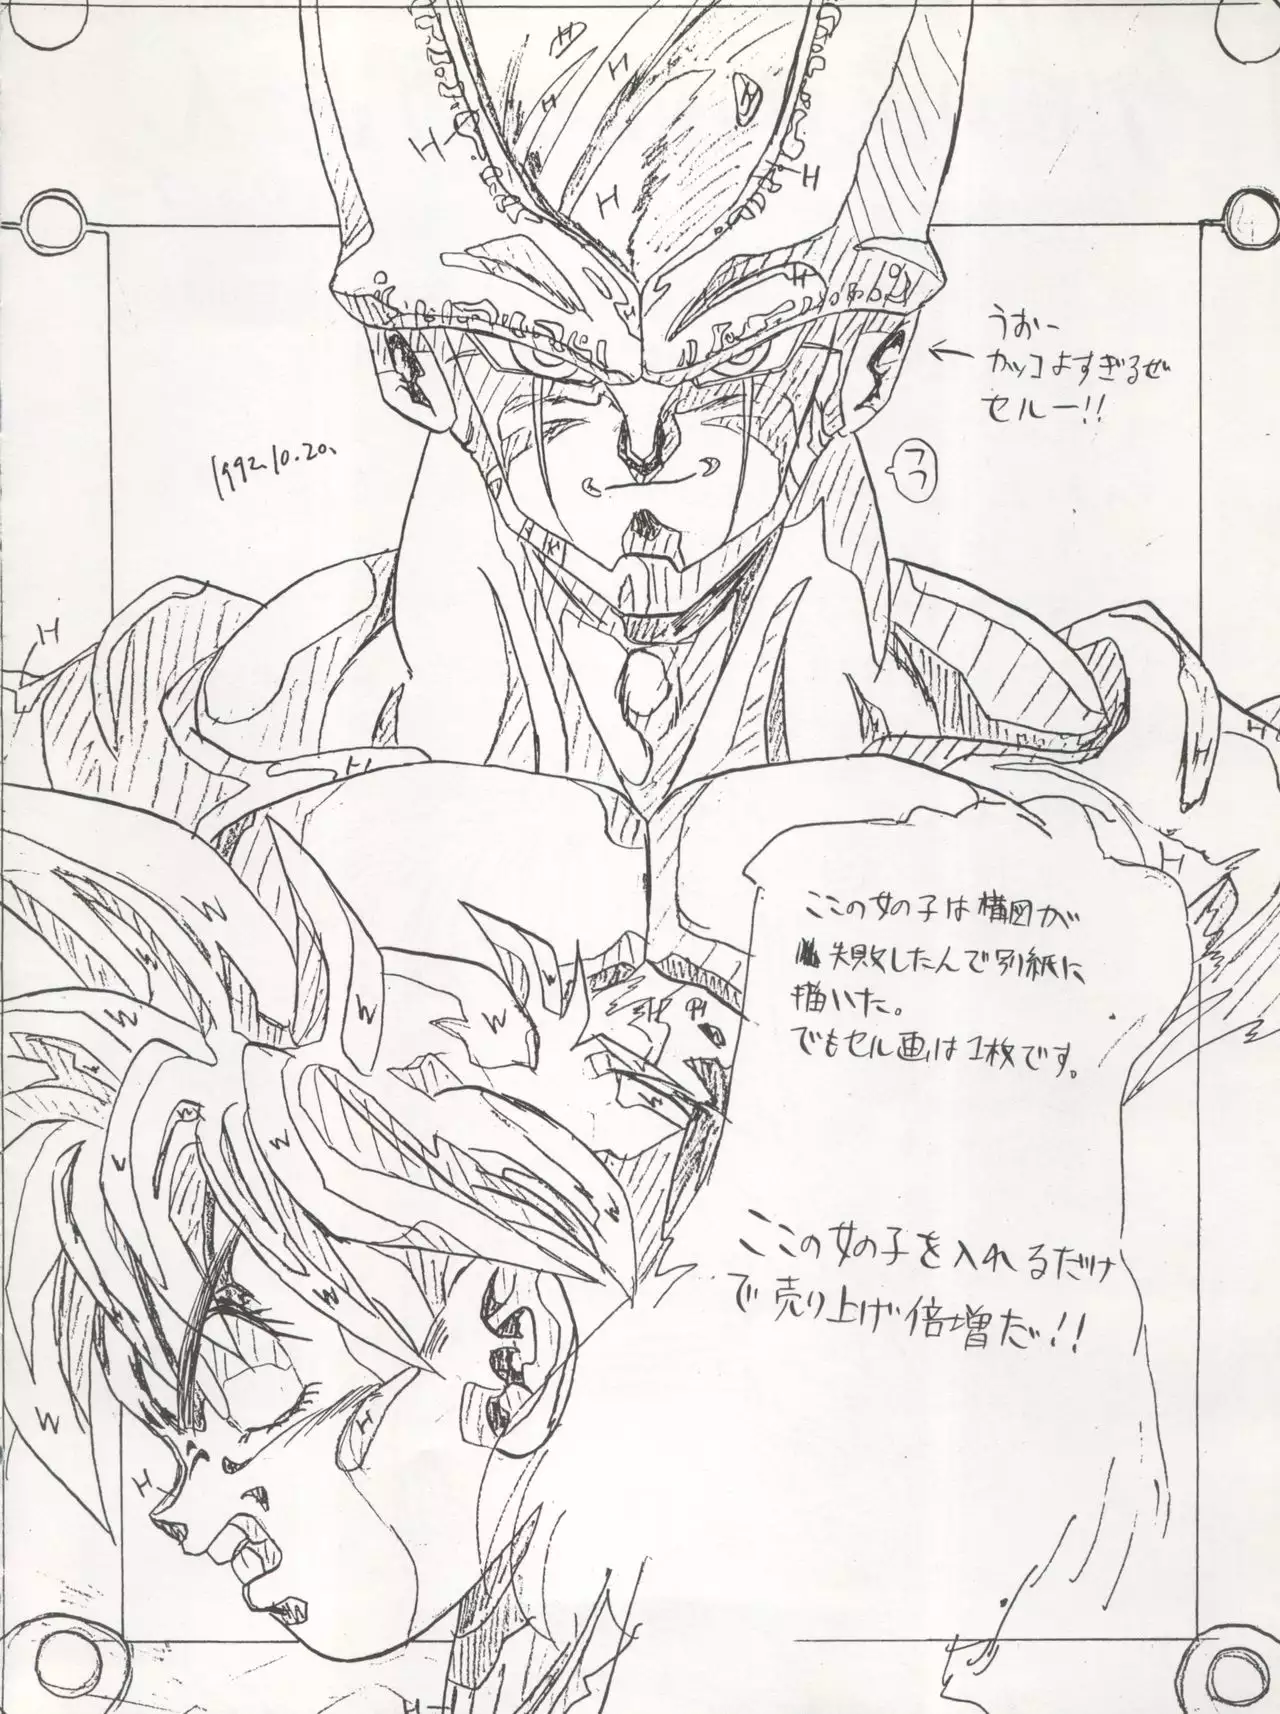 うおー
カッコよすぎるぜ
セルー!!
1992.10.20.
フフ
ここの女の子は構図が
失敗したんで別紙に
描いた。
でもセル画は1枚です。
ここの女の子を入れるだけ
で売り上げ倍増だ!!
H
H
H
H
H
H
H
H
H
H
W
W
W
W
W
W
W
H
H
H